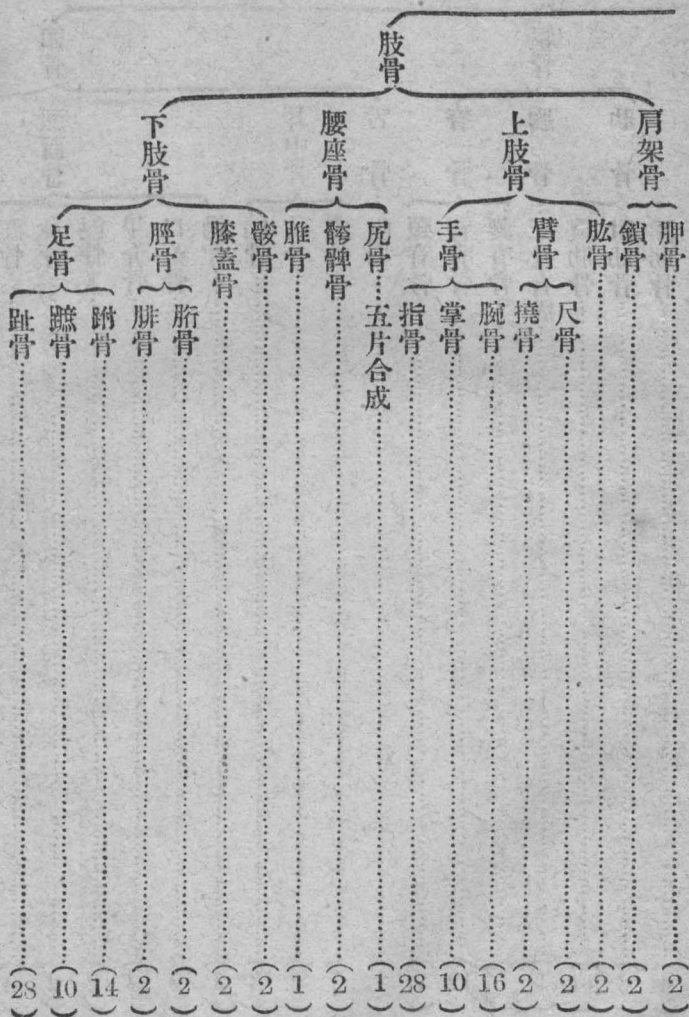 肢骨
肩架骨
胛骨(2)
鎖骨(2)
上肢骨
肱骨(2)
臂骨
尺骨(2)
撓骨(2)
手骨
腕骨(16)
掌骨(10)
指骨(28)
腰座骨
尻骨 五片合成(1)
髂髀骨(2)
脽骨(1)
下肢骨
髀骨(2)
膝蓋骨(2)
脛骨
胻骨(2)
腓骨(2)
足骨
跗骨(14)
蹠骨(10)
趾骨(28)